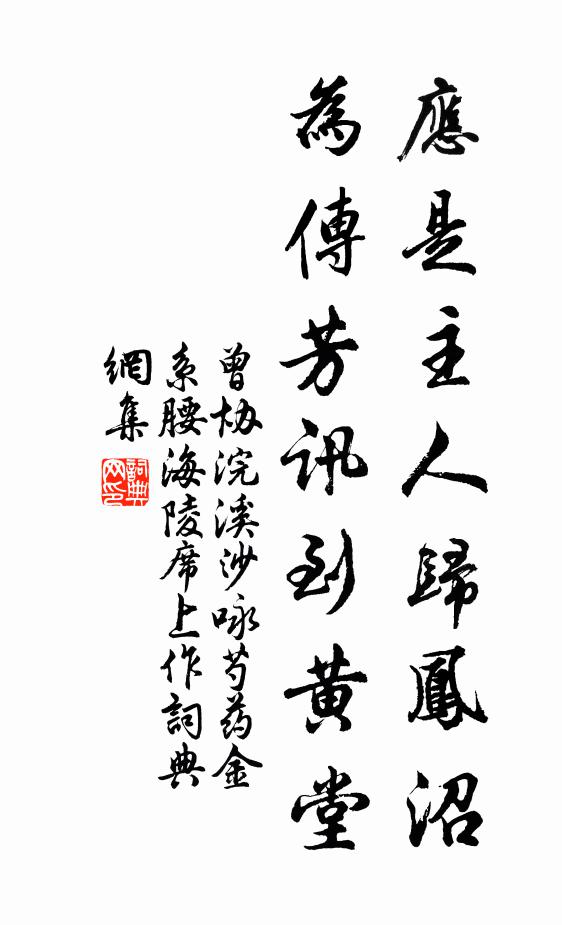 應是主人歸鳳沼
為傳芳訊到黃堂
曾協浣溪沙咏芍药金
系腰海陵席上作詞典
網集
詞典
网印